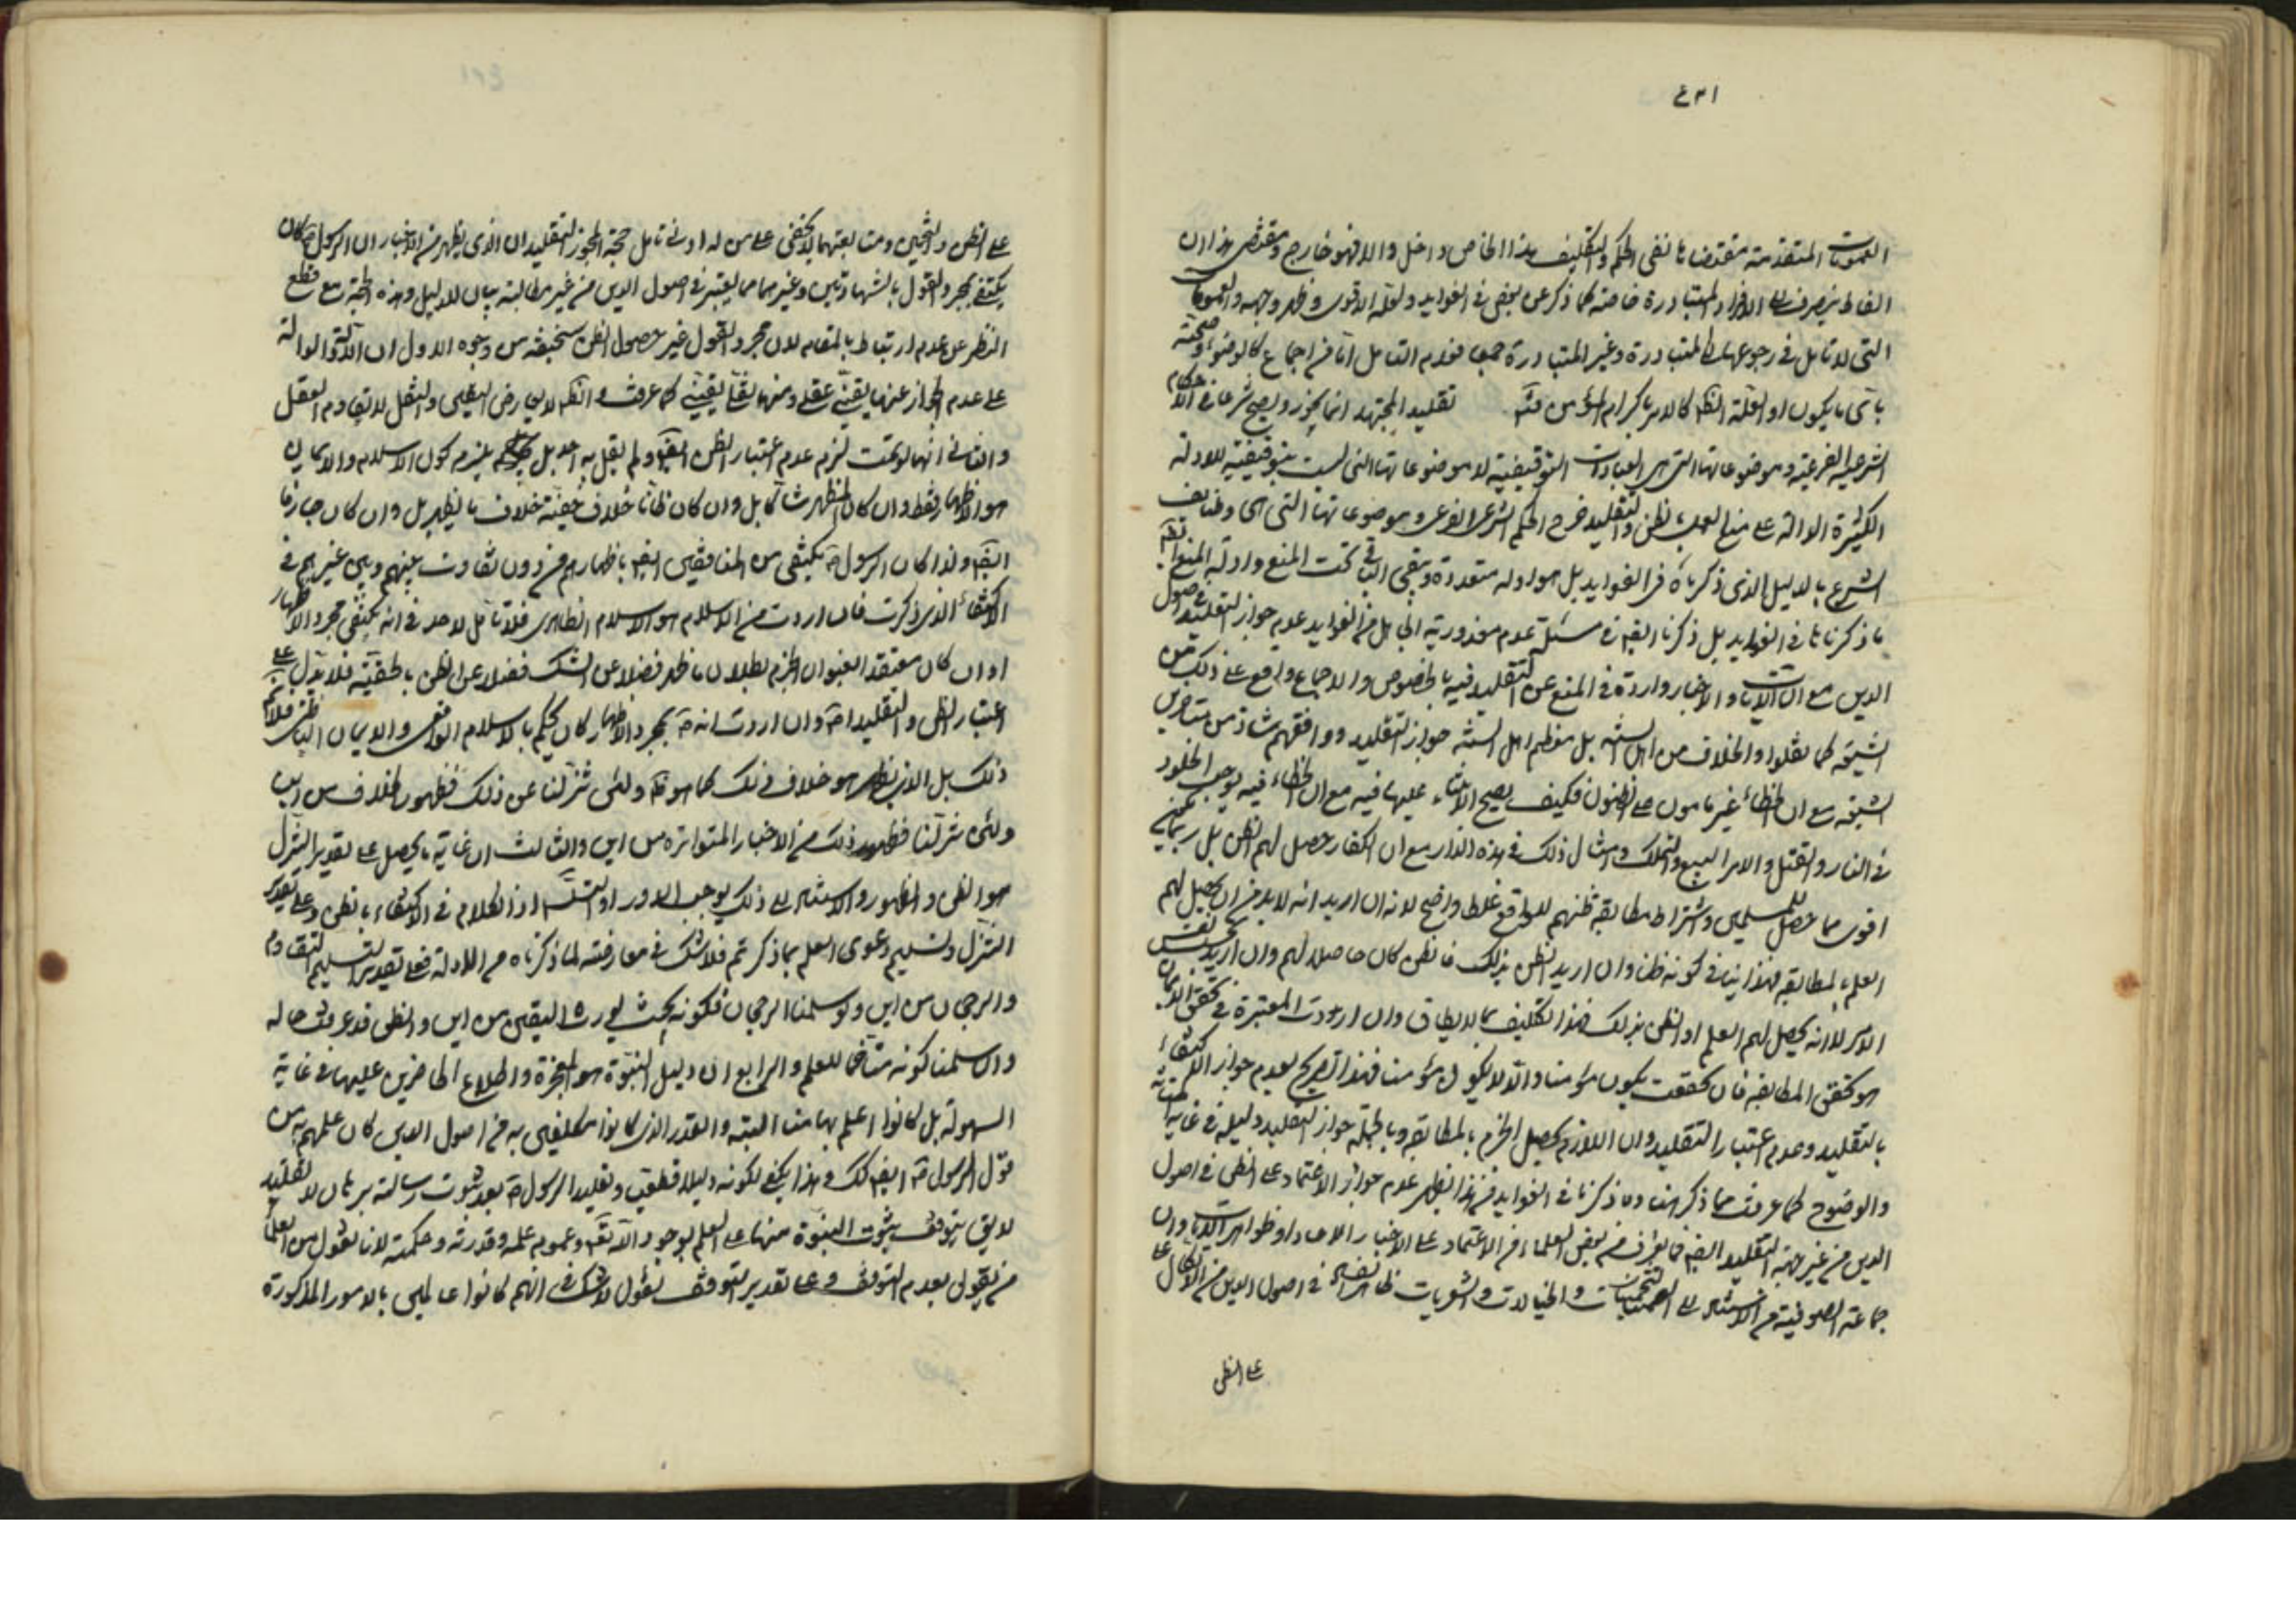 ٤٣١
العمومات المتقدمة مقتضاها نفي الحكم والتكليف بهذا الخاص داخل والا فهو خارج ومقتضى هذا ان
الفاظ ينصرف الى الافراد المتبادرة خاصة كما ذكر عن بعض في الفوايد ولعله الاقوى وظهر وجهه والعمومات
التي لا تأمل في رجوعها الى المتبادرة وغير المتبادرة جميعا فعدم التأمل اما من اجماع كالوضوء وصحته
باي ما يكون او العلة كالامر باكرام المؤمن تقليد المجتهد انما يجوز ويصح شرعا في الاحكام
الشرعية الفرعية وموضوعاتها التي هي العبادات التوقيفية لا موضوعاتها التي ليست بتوقيفية للادلة
الكثيرة الدالة على منع العمل بالظن والتقليد خرج الحكم الشرعي الفرعي وموضوعاتها التي هي وظايف
الشرع بالدليل الذي ذكرناه في الفوايد بل هو ادلة متعددة وبقي الباقي تحت المنع وادلة المنع ايضا
ما ذكرناها في الفوايد بل ذكرنا ايضا في مسئلة عدم معذورية الجاهل من الفوايد عدم جواز التقليد في اصول
الدين مع ان الآيات والاخبار واردة في المنع عن التقليد فيه بالخصوص والاجماع واقع على ذلك من
الشيعة كما نقلوا والخلاف من اهل السنة بل معظم اهل السنة جواز التقليد ووافقهم شاذ من متاخري
الشيعة مع ان الخطاء غير مامون على الظنون فكيف يصح الابتناء عليها فيه مع ان الخطاء فيه يوجب الخلود
في النار والقتل والاسر والبيع والتملك وامثال ذلك في هذه الدار مع ان الكفار حصل لهم الظن بل ربما ظنهم
اقوى مما حصل للمسلمين واشتراط مطابقة ظنهم للواقع غلط واضح لانه ان اريد انه لابد من ان يحصل لهم
العلم بالمطابقة فهذا ينافي كونه ظنا وان اريد الظن بذلك فالظن كان حاصلا لهم وان اريد تحقق نفس
الامر لا انه يحصل لهم العلم او الظن بذلك فهذا تكليف بما لا يطاق وان اردت المعتبرة في تحقق الايمان
هو تحقق المطابقة فان تحققت يكون مؤمنا والا لا يكون مؤمنا فهذا تصريح بعدم جواز الاكتفاء
بالتقليد وعدم اعتبار التقليد وان اللازم تحصيل الجزم بالمطابقة وبالجملة جواز التقليد دليله في غاية المتانة
والوضوح كما عرفت مما ذكر هنا وما ذكرنا في الفوايد فمن هذا يظهر عدم جواز الاعتماد على الظن في اصول
الدين من غير جهة التقليد ايضا فما يعرف من بعض العلماء من الاعتماد على الاخبار الاحاد او ظواهر الآيات وان
جماعة الصوفية من الاستناد الى التخمينات والخيالات والشعريات ظاهر في اصول الدين من الاتكال على
على الظن
على الظن والتخمين ومتابعتهما لا يخفى على من له ادنى تامل حجة المجوز للتقليد ان الذي يظهر من الاخبار ان الرسول ص كان
يكتفي بمجرد القول بالشهادتين وغيرهما مما يعتبر في اصول الدين من غير مطالبة بيان للدليل وهذه الحجة مع قطع
النظر عن عدم ارتباط بالمقام لان مجرد القول غير حصول الظن سخيفة من وجوه الاول ان الادلة الدالة
على عدم الجواز عنها يقيني عقلي ومنها نقلي يقيني كما عرفت والظن لا يعارض اليقين والنقل لا يقاوم العقل
والثاني انها لو تمت لزم عدم اعتبار الظن ايضا ولم يقل به احد بل يلزم كون الاسلام والايمان
هو الاظهار فقط وان كان المظهر شاكا بل وان كان ظانا خلاف حقية خلاف ما يظهر بل وان كان جازما
ايضا ولذا كان الرسول ص يكتفي من المنافقين ايضا باظهارهم من دون تفاوت بينهم وبين غيرهم في
الاكتفاء الذي ذكرت فان اردت من الاسلام هو الاسلام الظاهري فلا تامل لاحد في انه يكتفى بمجرد الاظهار
او ان كان معتقد العنوان الجزم ببطلان ما ظهر فضلا عن الشك فضلا عن الظن بالحقية فلا يدل على
اعتبار الظن والتقليد اص وان اردت انه ص بمجرد الاظهار كان يحكم بالاسلام الواقعي والايمان الباطني فلا نسلم
ذلك بل الذي يظهر هو خلاف ذلك كما هو ظ ولئن تنزلنا عن ذلك فظهور الخلاف من اين
ولئن تنزلنا فظهور ذلك من الاخبار المتواترة من اين والثالث ان غاية ما يحصل على تقدير التنزل
هو الظن والظهور والاستناد الى ذلك يوجب الدور او التسلسل اذ الكلام في الاكتفاء بالظن وعلى تقدير
التنزل وتسليم دعوى العلم بما ذكر ثم فلا شك في معارضته لما ذكرناه من الادلة فعلى تقدير التسليم التقاوم
والرجحان من اين ولو سلمنا الرجحان فكونه بحيث يورث اليقين من اين والظن قد عرفت حاله
وان سلمنا كونه متاخما للعلم والرابع ان دليل النبوة هو المعجزة واطلاع الحاضرين عليها في غاية
السهولة بل كانوا اعلم بها منا البتة والقدر الذي كانوا مكلفين به من اصول الدين كان علمهم به من
قول الرسول ص ايضا كك وهذا يكفي لكونه دليلا قطعيا وتقليد الرسول ص بعد ثبوت رسالته برهان لا تقليد
لا يق يتوقف ثبوت النبوة منها على العلم بوجود الله تعالى وعموم علمه وقدرته وحكمته لانا نقول من العلماء
من يقول بعدم التوقف وعلى تقدير التوقف نقول لا شك في انهم كانوا عالمين بالامور المذكورة